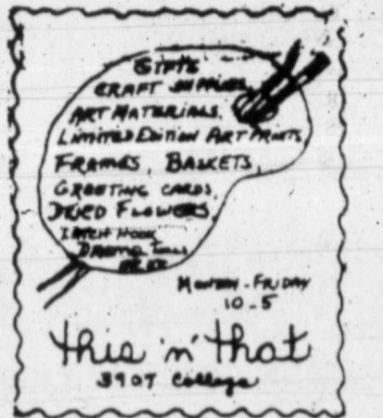 GIFTS
CRAFT SUPPLIES,
ART MATERIALS,
LIMITED EDITION ART PRINTS,
FRAMES, BASKETS,
GREETING CARDS,
DRIED FLOWERS,
LATCH HOOK
MONDAY - FRIDAY
10 - 5
this 'n' that
3907 College